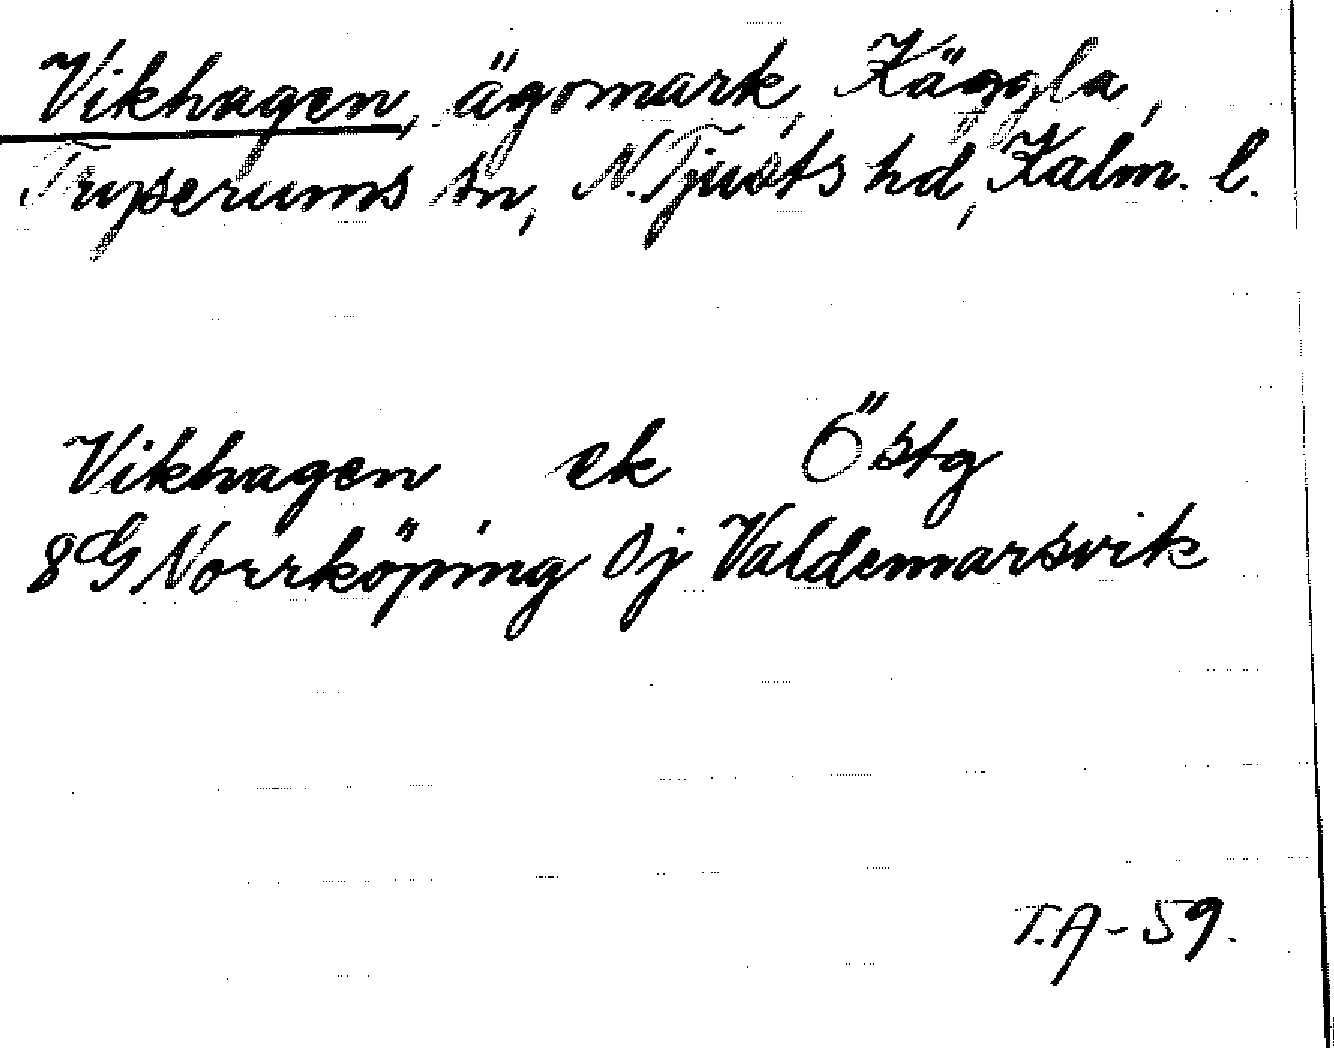 Vikhagen, ägomark, Käggla,
Tryserums sn, N. Tjusts hd, Kalm. l.
Vikhagen ek Östg
8G Norrköping 0j Valdemarsvik
T.A-59.